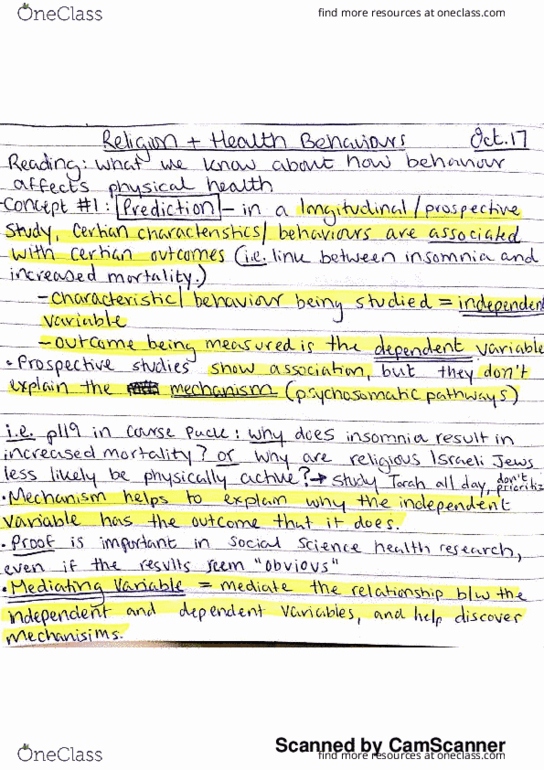 OneClass
find more resources at oneclass.com
Religion + Health Behaviours Oct.17
Reading: what we know about how behaviour
affects physical health
-Concept #1: Prediction - in a longitudinal/prospective
study, certian characteristics/behaviours are associated
with certian outcomes (i.e. link between insomnia and
increased mortality.)
-characteristic/behaviour being studied = independent
variable
-outcome being measured is the dependent variable
• Prospective studies show association, but they don't
explain the mechanism (psychosomatic pathways)
i.e. p119 in Course Pack: why does insomnia result in
increased mortality? or why are religious Israeli Jews
less likely be physically active? → study Torah all day, don't
•Mechanism helps to explain why the independent
variable has the outcome that it does.
•Proof is important in social science health research,
even if the results seem "obvious"
•Mediating Variable = mediate the relationship b/w the
independent and dependent variables, and help discover
mechanisims.
Scanned by CamScanner
OneClass
find more resources at oneclass.com